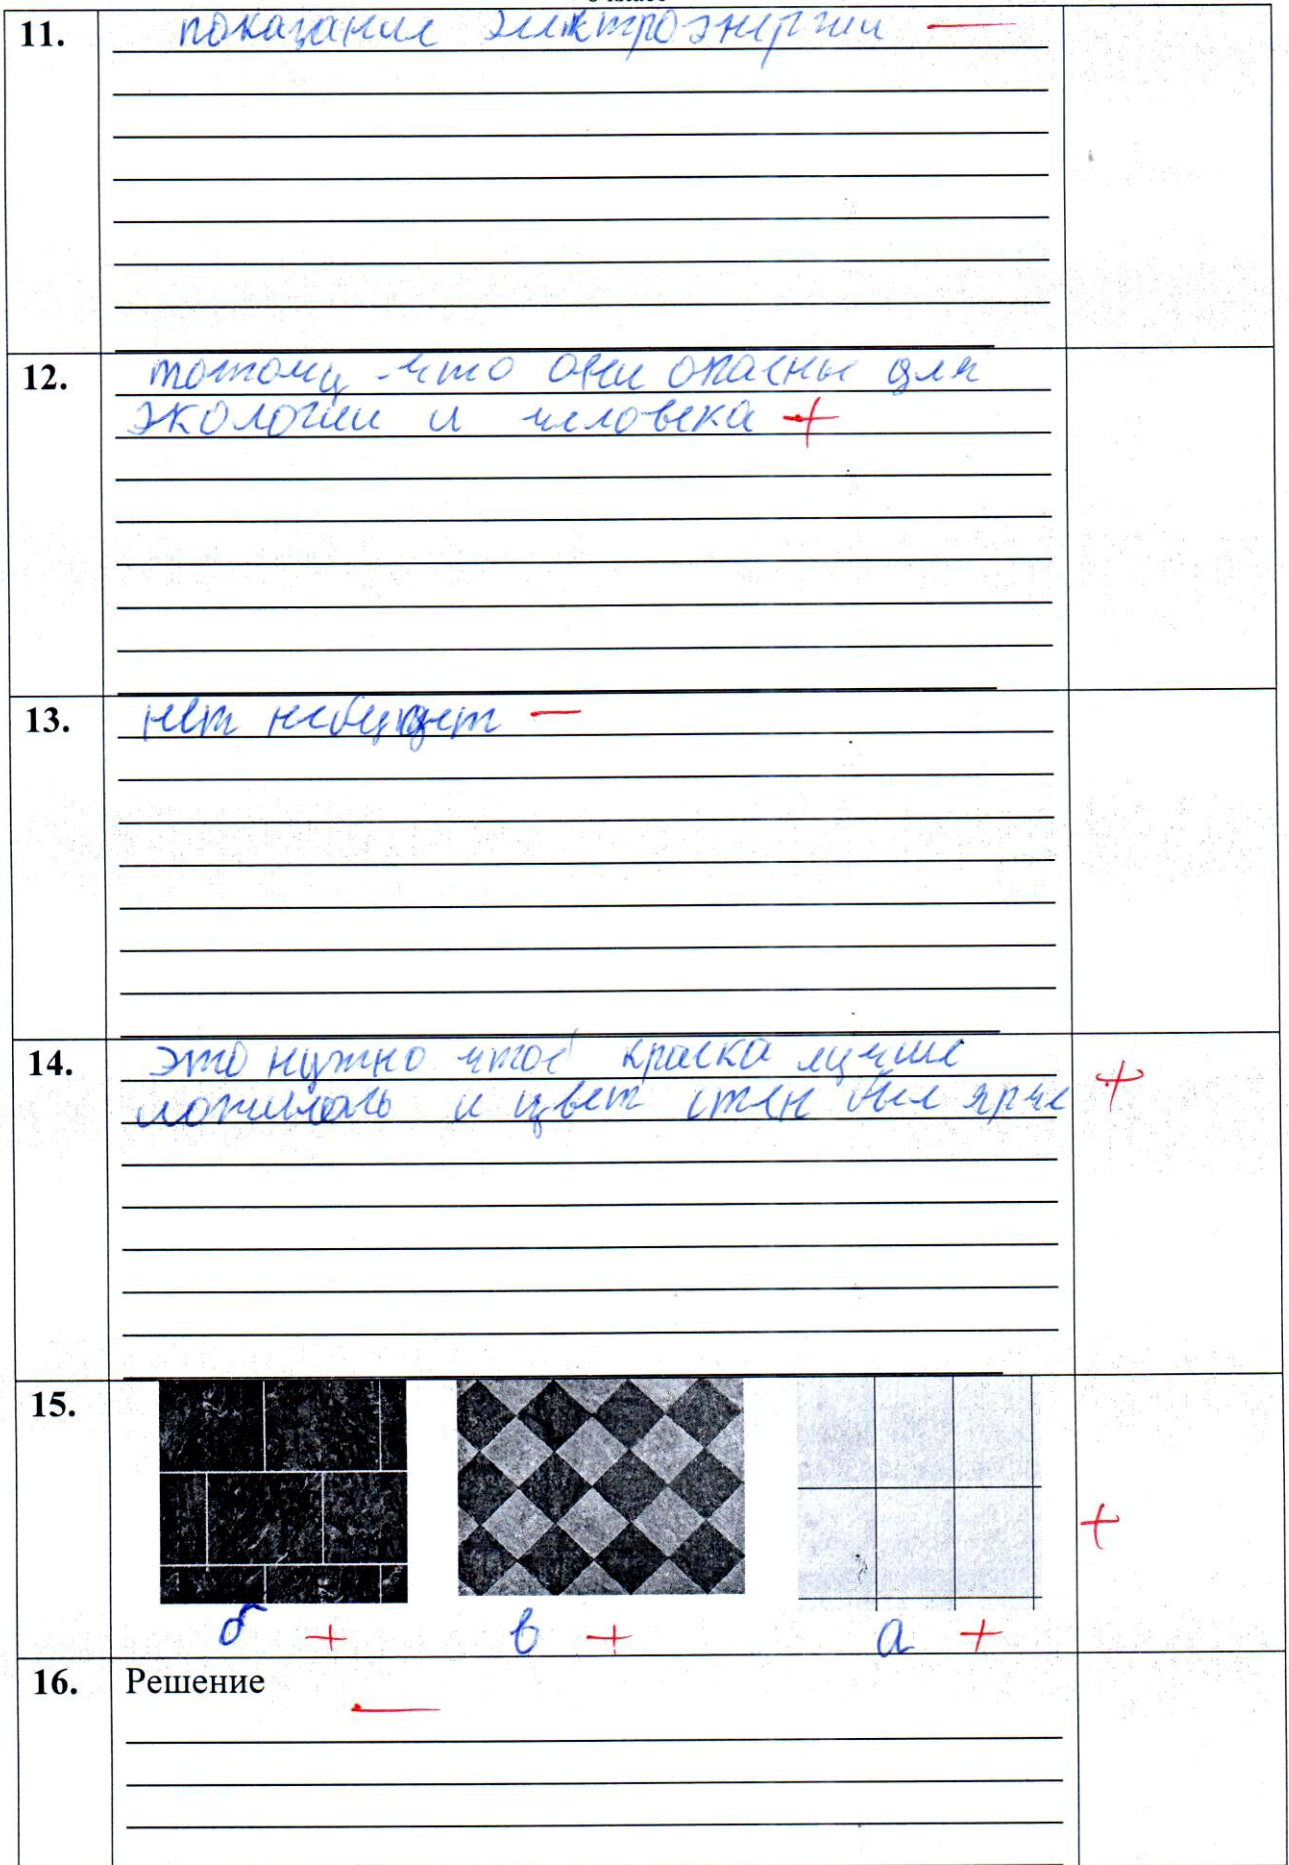 11. показание электроэнергии —
12. потому что они опасны для
экологии и человека +
13. нет небудет —
14. это нужно чтоб краска лучше +
ложилась и цвет стен был ярче
15. +
б + в + а +
16. Решение
—